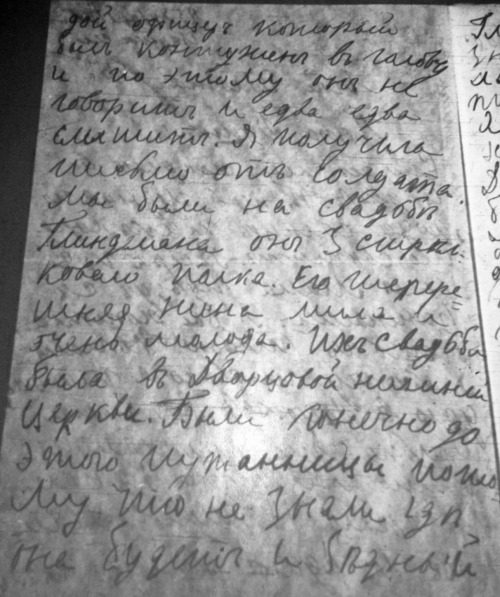 дой офицеръ который
былъ контуженъ въ голову
и по этому онъ не
говоритъ и едва едва
слышитъ. Я получила
письмо отъ солдата.
Мы были на свадьбѣ
Глиндмана онъ 3 стрѣл-
коваго полка. Его тепере=
шняя жена мила и
очень молода. Ихъ свадьба
была въ Дворцовой нижней
церкви. Были конечно до
этого путанницы пото
му что не знали гдѣ
она будетъ и бѣдный